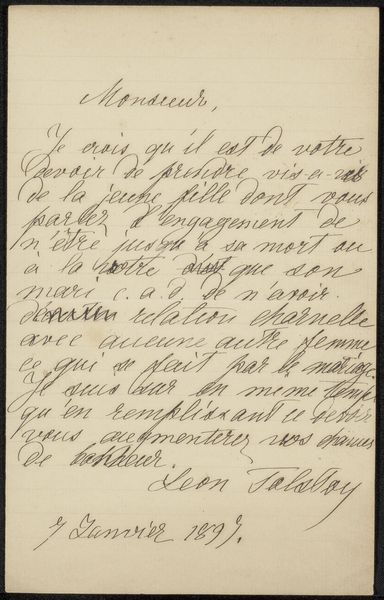 Monsieur,
Je crois qu'il est de votre
devoir de prendre vis-a-vis
de la jeune fille dont vous
parlez d'engagement de
n'être jusqu'a sa mort ou
à la votre que son
mari c. a. d. de n'avoir
relation charnelle
avec aucune autre femme
ce qui se fait par le mariage.
Je suis sur en meme temps
qu'en remplissant ce devoir
vous augmenterez vos chances
de bonheur.
Léon Tolstoy
7 Janvier 1895.